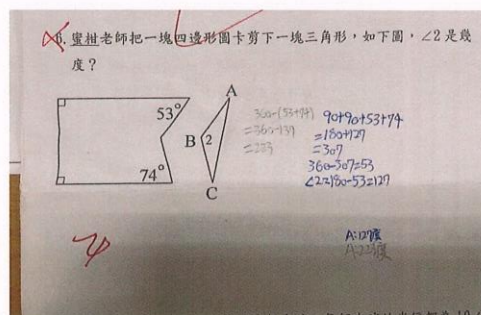 6.蜜柑老師把一塊四邊形圖卡剪下一塊三角形,如下圖,∠2是幾
度?
53°
74°
A
B
2
C
360-(53+74)
=360-137
=223
90+90+53+74
=180+127
=307
360-307=53
∠2=180-53=127
A:127度
A:223度